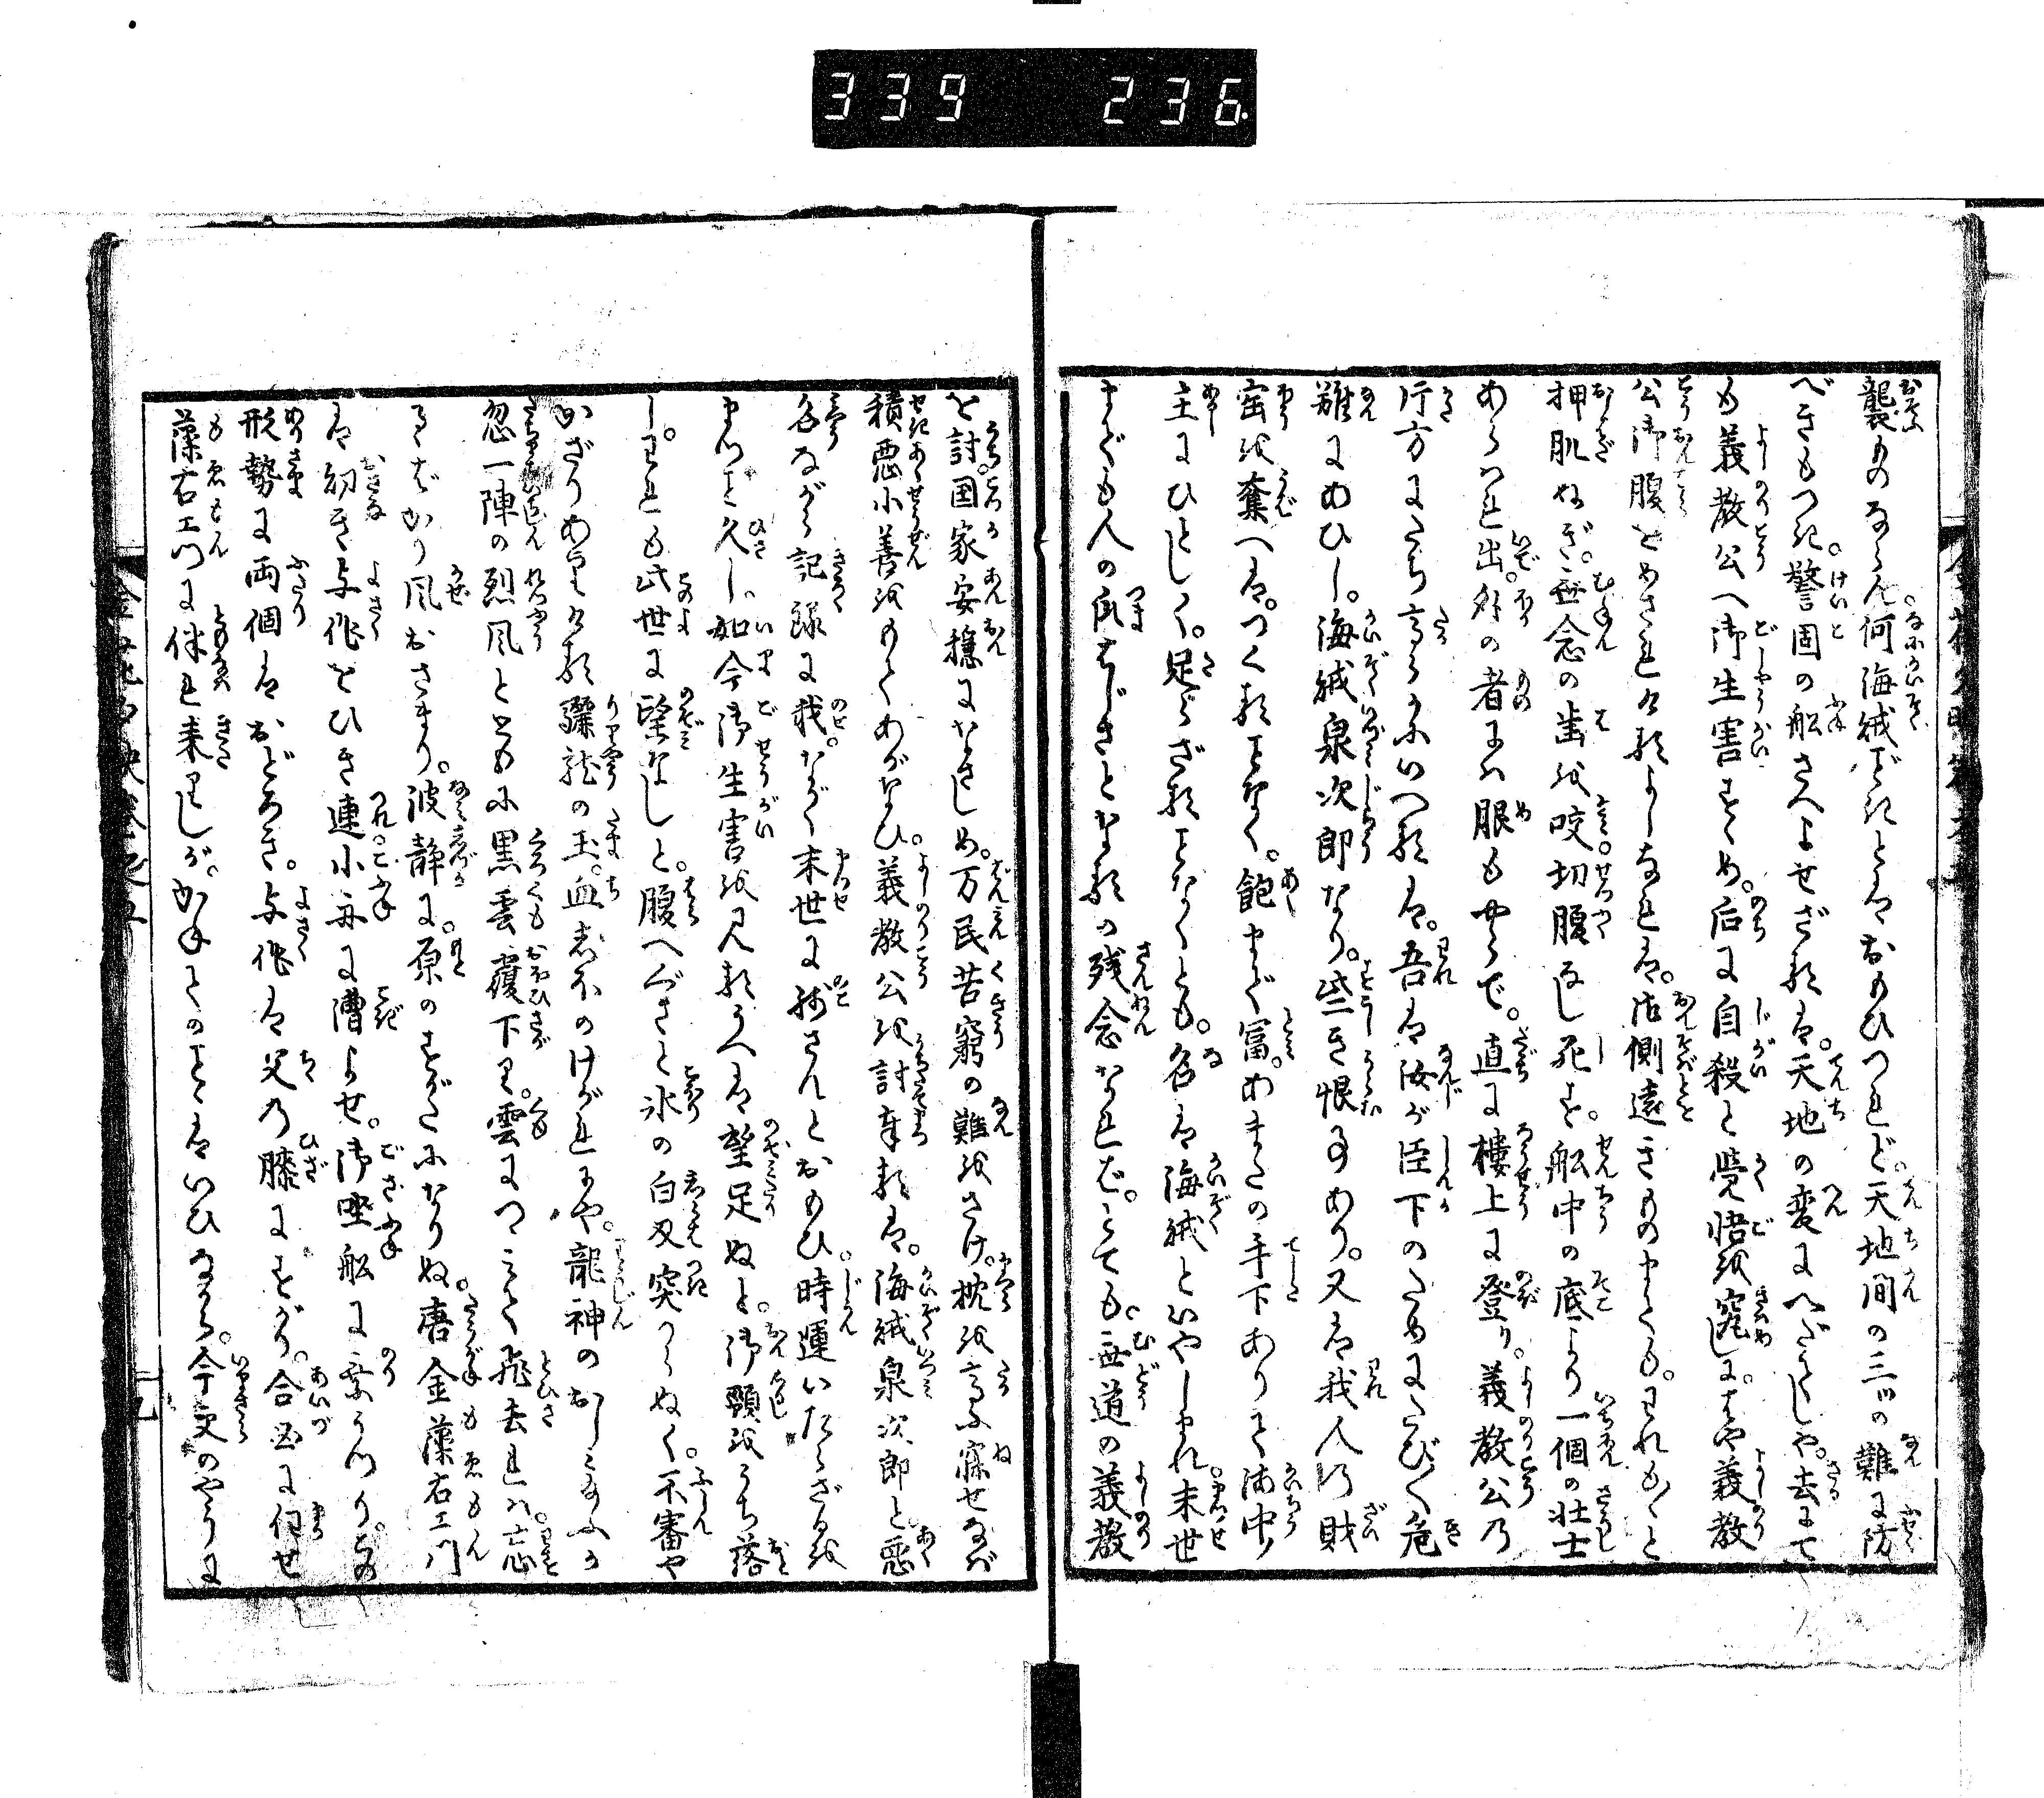 339 236
襲ものならん何海賊ごときとはおもひつれど。天地間の三ツの難に防
べきもつき。警固の船さへよせざるは。天地の変にへだてしや。去にて
も義教公へ御生害をすゝめ。后に自殺と覚悟を窮しに。はや義教
公御腹をめされけるよしなれは。御側遠きものまでも。われも〳〵と
押肌ぬぎ。無念の歯を咬切腹なし死す。船中の底より一個の壮士
あらはれ出。外の者には眼もやらで。直に楼上に登り。義教公の
行方にたち高らかにいへるは。吾は汝が臣下のためにたび〳〵危
難にあひし。海賊泉次郎なり。些き恨事あり。又は我人の財
宝を奪へは。つくることなく。飽まで富。あまたの手下ありて海中の
主にひとしく。足らざることなくとも。名は海賊といやしまれ末世
までも人の爪はじきとなるの残念なれば。とても。無道の義教
を討。国家安穏になさしめ。万民苦窮の難をさけ。枕を高ふ寐せなば
積悪小善をもてあがなひ。義教公を討奉るは。海賊泉次郎と悪
名ながら記録に載。ながく末世に残さんとおもひ。時運いたらざるを
まつこと久し。如今御生害を見るうへは望足ぬと。御頸をうち落
し。われも此世に望なしと。腹へぐさと氷の白刃突つらぬく。不審や
かざりありける驪龍の玉。血しほのけがれにや。龍神のおしみ給ふか
忽一陣の烈風とともに黒雲覆下り。雲につゝみて飛去れは。忘
るゝばかり風おさまり。波静に。原のすがたになりぬ。唐金藻右エ門
は幼き与作をひき連小舟に漕よせ。御座船に乗うつり。此
形勢に両個はおどろき。与作は父の膝にすがり。合図に任せ
藻右エ門に伴れ来りしが。かねてのことはいひながら。今更のやうに